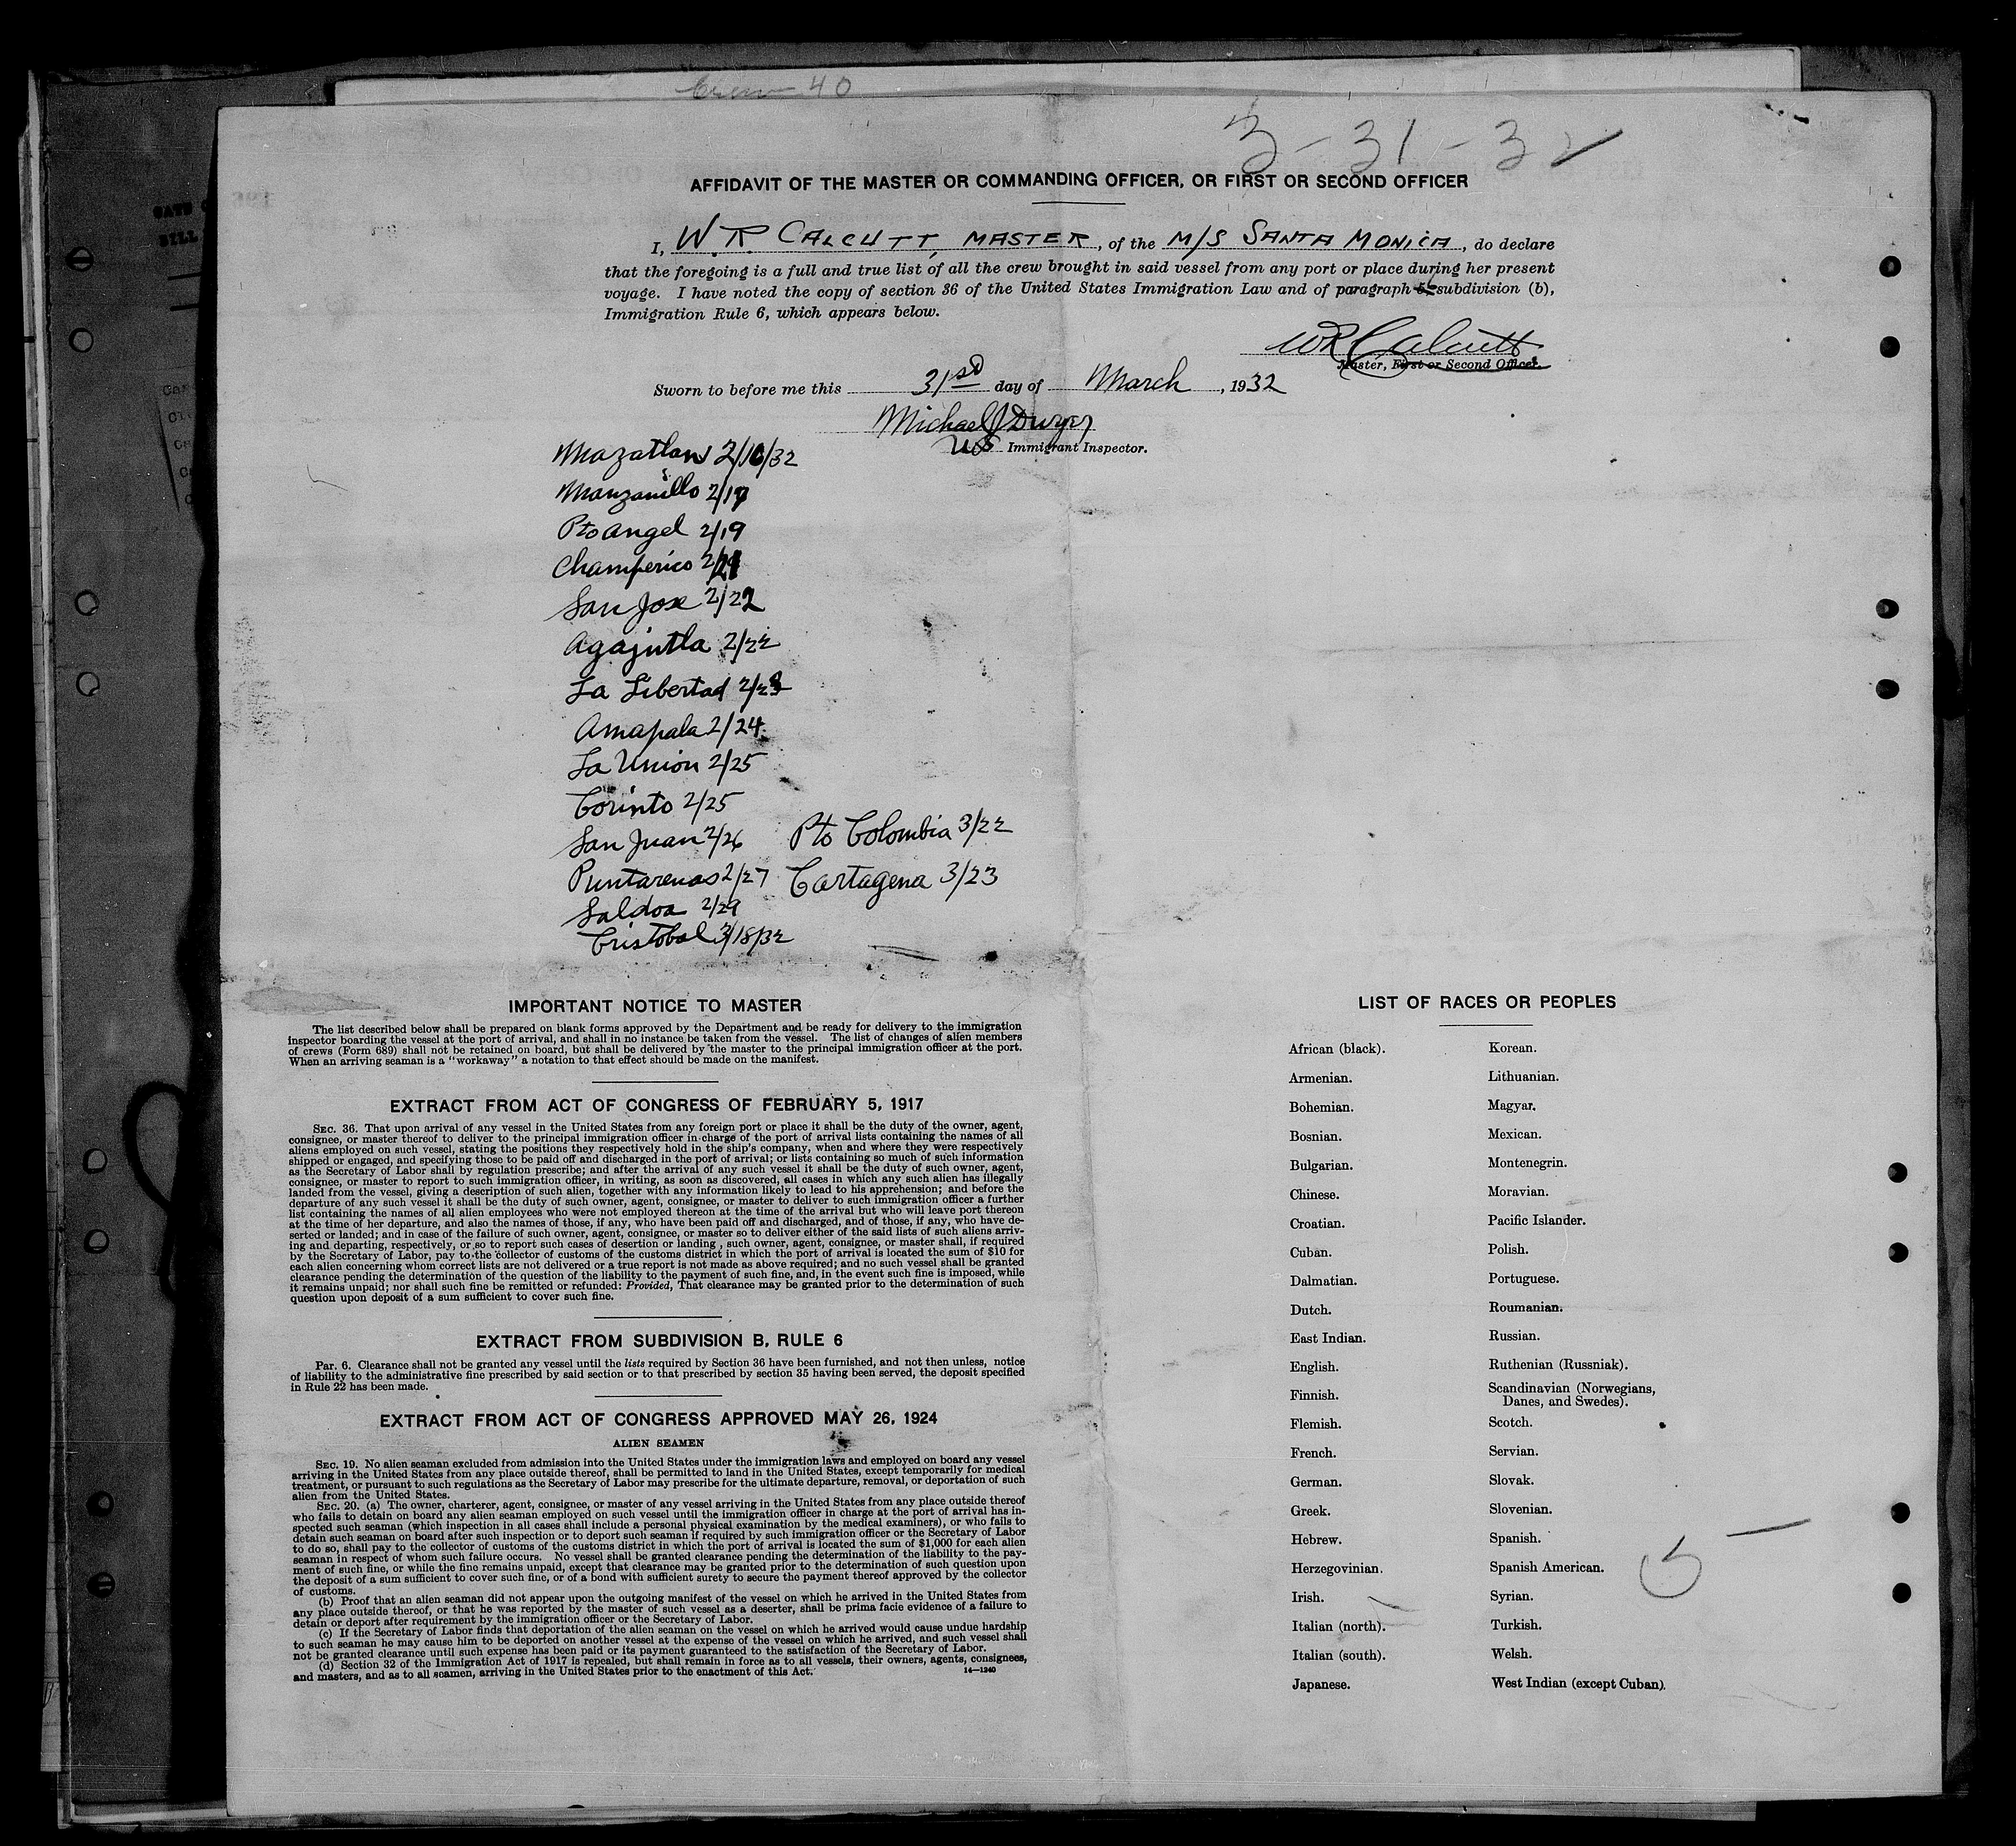 Crew 40
3-31-32
AFFIDAVIT OF THE MASTER OR COMMANDING OFFICER, OR FIRST OR SECOND OFFICER
I, W. R. CALCUTT, MASTER, of the M/S SANTA MONICA, do declare
that the foregoing is a full and true list of all the crew brought in said vessel from any port or place during her present
voyage. I have noted the copy of section 36 of the United States Immigration Law and of paragraph 6, subdivision (b),
Immigration Rule 6, which appears below.
WR Calcutt
Master, First or Second Officer.
Sworn to before me this 31st day of March, 1932
Michael J Dwyer
US Immigrant Inspector.
Mazatlan 2/16/32
Manzanillo 2/17
Pto Angel 2/19
Champerico 2/21
San Jose 2/22
Agajutla 2/22
La Libertad 2/23
Amapala 2/24
La Union 2/25
Corinto 2/25
San Juan 2/26
Pto Colombia 3/22
Puntarenas 2/27
Cartagena 3/23
Saldoa 2/29
Cristobal 3/18/32
IMPORTANT NOTICE TO MASTER
The list described below shall be prepared on blank forms approved by the Department and be ready for delivery to the immigration
inspector boarding the vessel at the port of arrival, and shall in no instance be taken from the vessel. The list of changes of alien members
of crews (Form 689) shall not be retained on board, but shall be delivered by the master to the principal immigration officer at the port.
When an arriving seaman is a "workaway" a notation to that effect should be made on the manifest.
EXTRACT FROM ACT OF CONGRESS OF FEBRUARY 5, 1917
SEC. 36. That upon arrival of any vessel in the United States from any foreign port or place it shall be the duty of the owner, agent,
consignee, or master thereof to deliver to the principal immigration officer in charge of the port of arrival lists containing the names of all
aliens employed on such vessel, stating the positions they respectively hold in the ship's company, when and where they were respectively
shipped or engaged, and specifying those to be paid off and discharged in the port of arrival; or lists containing so much of such information
as the Secretary of Labor shall by regulation prescribe; and after the arrival of any such vessel it shall be the duty of such owner, agent,
consignee, or master to report to such immigration officer, in writing, as soon as discovered, all cases in which any such alien has illegally
landed from the vessel, giving a description of such alien, together with any information likely to lead to his apprehension; and before the
departure of any such vessel it shall be the duty of such owner, agent, consignee, or master to deliver to such immigration officer a further
list containing the names of all alien employees who were not employed thereon at the time of the arrival but who will leave port thereon
at the time of her departure, and also the names of those, if any, who have been paid off and discharged, and of those, if any, who have de-
serted or landed; and in case of the failure of such owner, agent, consignee, or master so to deliver either of the said lists of such aliens arriv-
ing and departing, respectively, or so to report such cases of desertion or landing, such owner, agent, consignee, or master shall, if required
by the Secretary of Labor, pay to the collector of customs of the customs district in which the port of arrival is located the sum of $10 for
each alien concerning whom correct lists are not delivered or a true report is not made as above required; and no such vessel shall be granted
clearance pending the determination of the question of the liability to the payment of such fine, and, in the event such fine is imposed, while
it remains unpaid; nor shall such fine be remitted or refunded: Provided, That clearance may be granted prior to the determination of such
question upon deposit of a sum sufficient to cover such fine.
EXTRACT FROM SUBDIVISION B, RULE 6
Par. 6. Clearance shall not be granted any vessel until the lists required by Section 36 have been furnished, and not then unless, notice
of liability to the administrative fine prescribed by said section or to that prescribed by section 35 having been served, the deposit specified
in Rule 22 has been made.
EXTRACT FROM ACT OF CONGRESS APPROVED MAY 26, 1924
ALIEN SEAMEN
SEC. 19. No alien seaman excluded from admission into the United States under the immigration laws and employed on board any vessel
arriving in the United States from any place outside thereof, shall be permitted to land in the United States, except temporarily for medical
treatment, or pursuant to such regulations as the Secretary of Labor may prescribe for the ultimate departure, removal, or deportation of such
alien from the United States.
SEC. 20. (a) The owner, charterer, agent, consignee, or master of any vessel arriving in the United States from any place outside thereof
who fails to detain on board any alien seaman employed on such vessel until the immigration officer in charge at the port of arrival has in-
spected such seaman (which inspection in all cases shall include a personal physical examination by the medical examiners), or who fails to
detain such seaman on board after such inspection or to deport such seaman if required by such immigration officer or the Secretary of Labor
to do so, shall pay to the collector of customs of the customs district in which the port of arrival is located the sum of $1,000 for each alien
seaman in respect of whom such failure occurs. No vessel shall be granted clearance pending the determination of the liability to the pay-
ment of such fine, or while the fine remains unpaid, except that clearance may be granted prior to the determination of such question upon
the deposit of a sum sufficient to cover such fine, or of a bond with sufficient surety to secure the payment thereof approved by the collector
of customs.
(b) Proof that an alien seaman did not appear upon the outgoing manifest of the vessel on which he arrived in the United States from
any place outside thereof, or that he was reported by the master of such vessel as a deserter, shall be prima facie evidence of a failure to
detain or deport after requirement by the immigration officer or the Secretary of Labor.
(c) If the Secretary of Labor finds that deportation of the alien seaman on the vessel on which he arrived would cause undue hardship
to such seaman he may cause him to be deported on another vessel at the expense of the vessel on which he arrived, and such vessel shall
not be granted clearance until such expense has been paid or its payment guaranteed to the satisfaction of the Secretary of Labor.
(d) Section 32 of the Immigration Act of 1917 is repealed, but shall remain in force as to all vessels, their owners, agents, consignees,
and masters, and as to all seamen, arriving in the United States prior to the enactment of this Act.
14—1240
LIST OF RACES OR PEOPLES
African (black). Korean.
Armenian. Lithuanian.
Bohemian. Magyar.
Bosnian. Mexican.
Bulgarian. Montenegrin.
Chinese. Moravian.
Croatian. Pacific Islander.
Cuban. Polish.
Dalmatian. Portuguese.
Dutch. Roumanian.
East Indian. Russian.
English. Ruthenian (Russniak).
Finnish. Scandinavian (Norwegians,
Danes, and Swedes).
Flemish. Scotch.
French. Servian.
German. Slovak.
Greek. Slovenian.
Hebrew. Spanish.
Herzegovinian. Spanish American.
Irish. Syrian.
Italian (north). Turkish.
Italian (south). Welsh.
Japanese. West Indian (except Cuban).
5